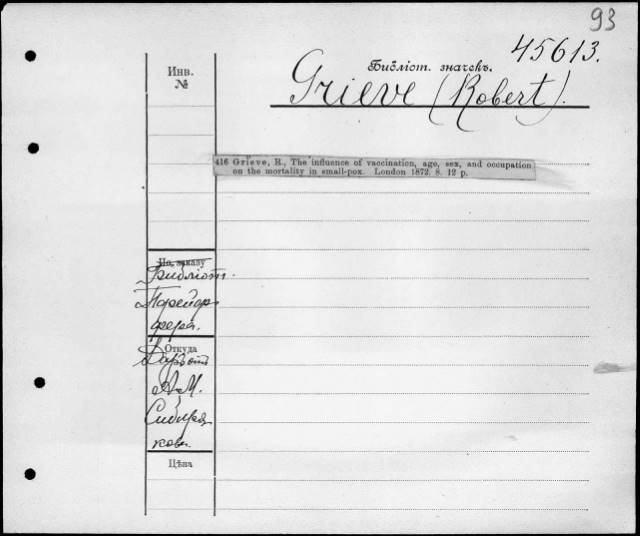 93
45613.
Инв.
№
Библіот. значекъ.
Grieve (Robert).
416 Grieve, R., The influence of vaccination, age, sex, and occupation
on the mortality in small-pox. London 1872. 8. 12 p.
По заказу
Библіот.
Откуда
А. М.
Сибиря
ков.
Цѣна